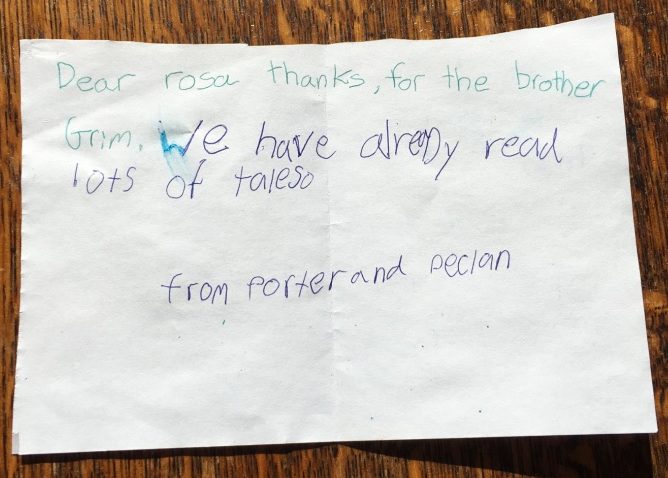 Dear rosa thanks, for the brother
Grim. We have already read
lots of tales.
from Porter and Declan